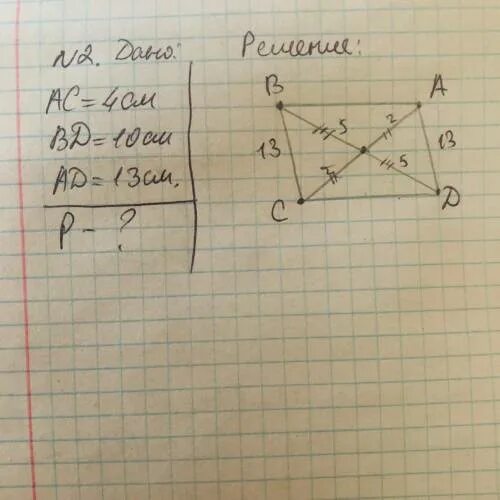 N2. Дано:
AC = 4 см
BD = 10 см
AD = 13 см.
P - ?
Решение:
B A
5 2
13 13
2 5
C D